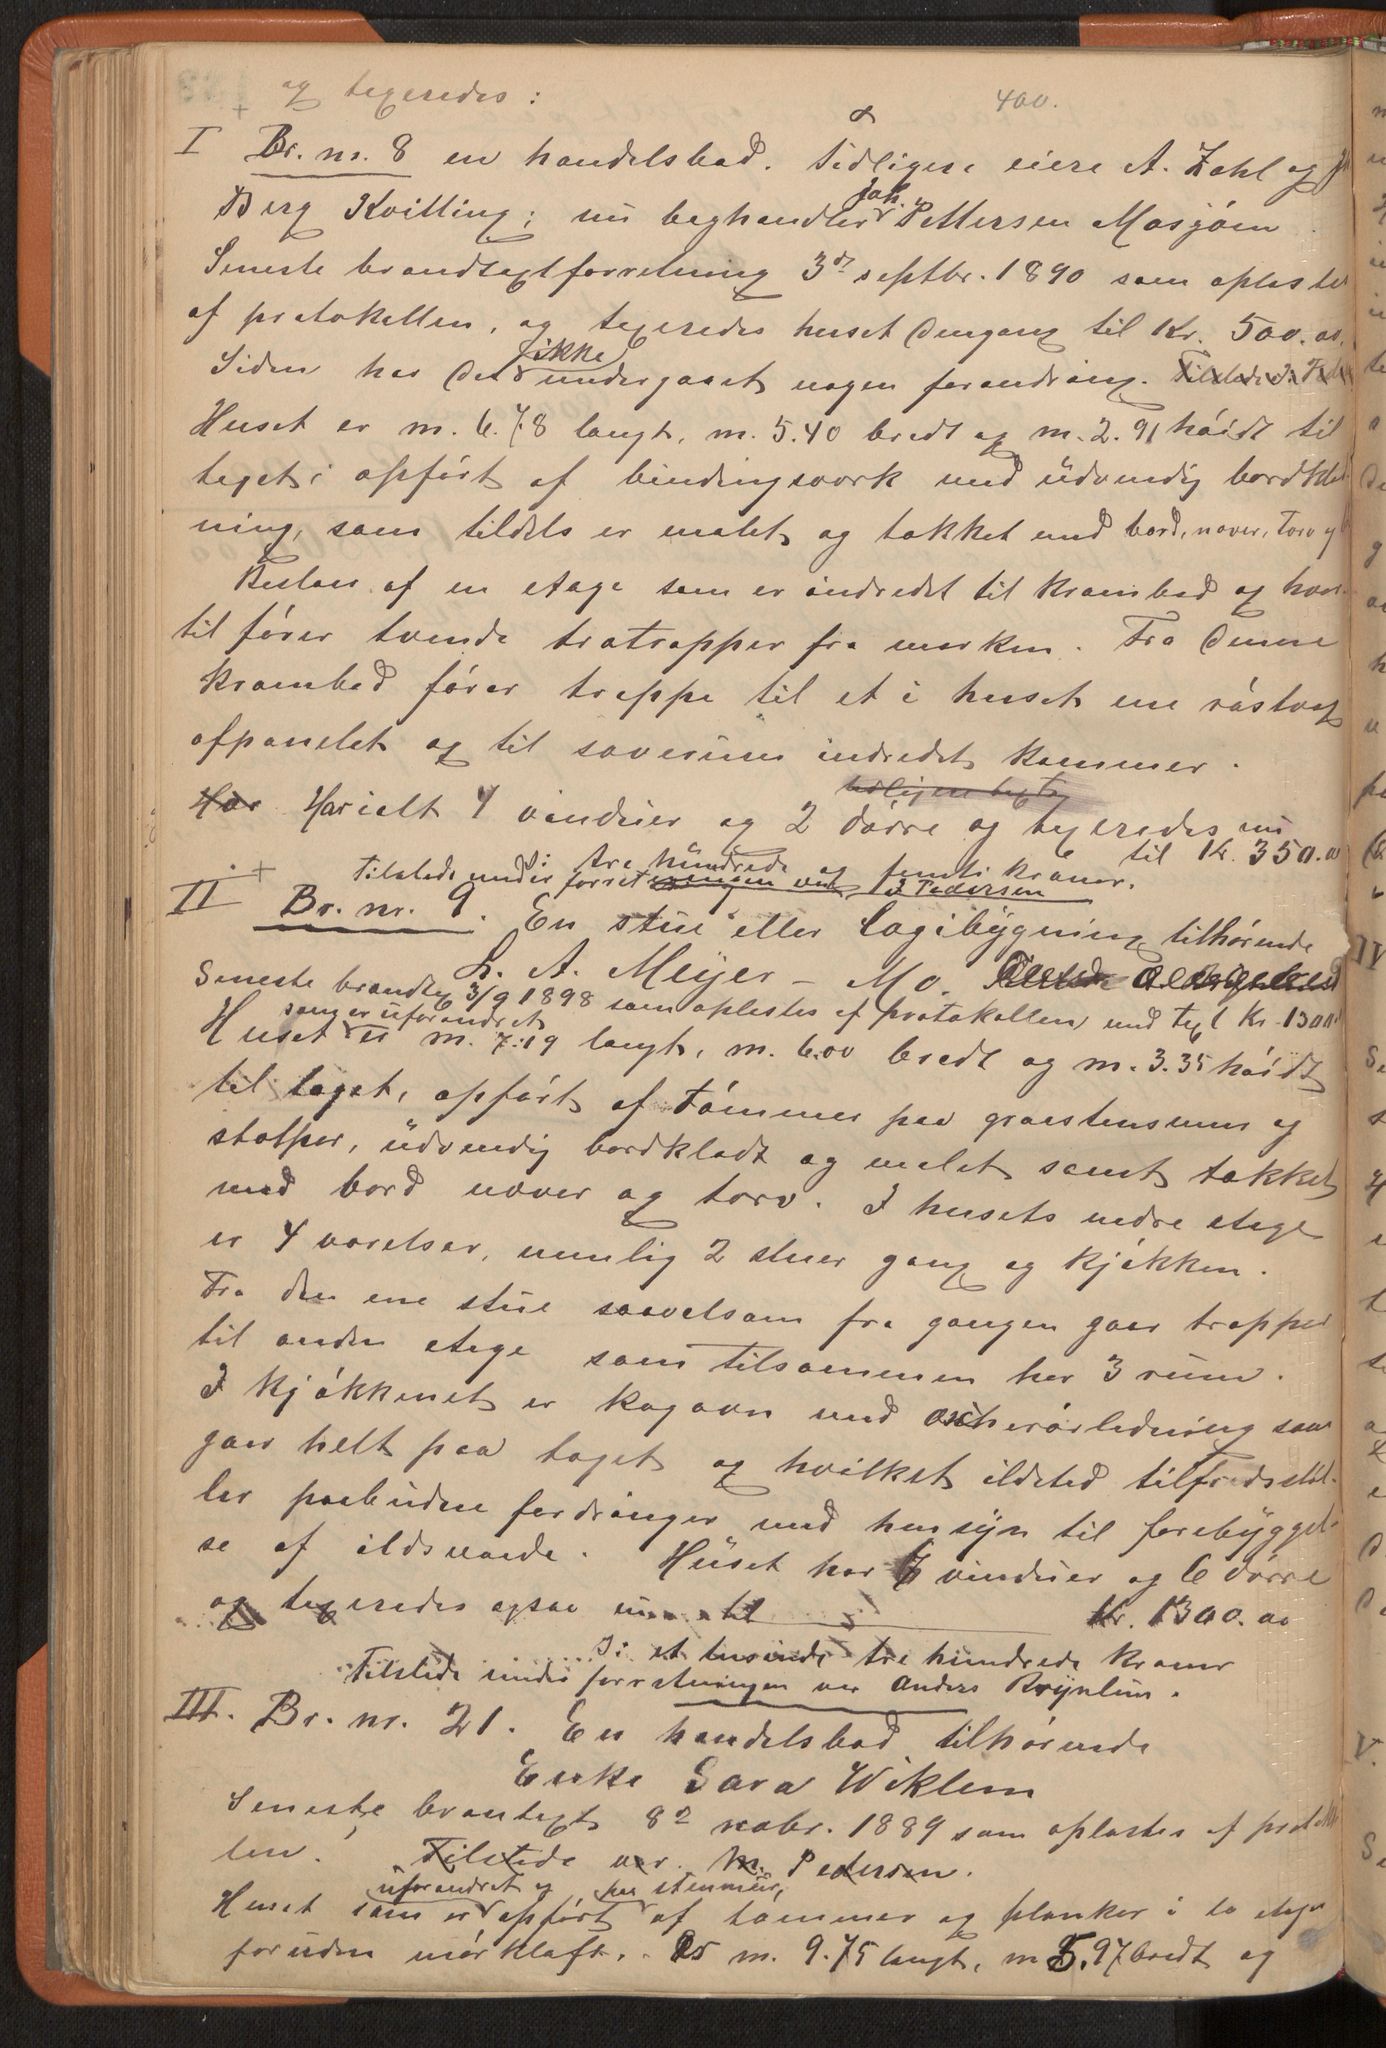 og taxeredes:
400.
I Br. nr. 8 en handelsbod. Tidligere eiere A. Zahl og
Berg Kvitting; nu baghandler Joh. Pettersen Mosjøen
Seneste brandtaxtforretning 3d septbr. 1890 som oplæstes
af protokollen, og taxeredes huset dengang til Kr. 500.00.
Siden har det ikke undergaaet nogen forandring. Tilstede
Huset er m. 6.78 langt, m. 5.40 bredt og m. 2.91 høidt til
taget; opført af bindingsverk med udvendig bordklæd-
ning, som tildels er malet og tækket med bord, næver, torv og
Bestaar af en etage som er indredet til krambod og hvor-
til fører tvende trætrapper fra marken. Fra denne
krambod fører trappe til et i huset ene røstværg
afpanelet og til soverum indredet kammer.
Har Har ialt 4 vinduer og 2 dørre og taxeredes nu
til Kr. 350.00
Tilstede under forretningen var J Pedersen
: tre hundrede og femti kroner.
II Br. nr. 9. En stue eller logibygning tilhørende
L. A. Meyer – Mo.
Seneste brandtaxt 3/9 1898 som oplæstes af protokollen med taxt Kr. 1300.
Huset som er uforandret er m. 7.19 langt, m. 6.00 bredt og m. 3.35 høidt
til taget, opført af tømmer paa graastensmur og
stolper, udvendig bordklædt og malet samt tækket
med bord næver og torv. I husets nedre etage
er 4 værelser, nemlig 2 stuer gang og kjøkken.
Fra den ene stue saavelsom fra gangen gaar trapper
til anden etage som tilsammen har 3 rum.
I kjøkkenet er kogeovn med rørledning som
gaar helt paa taget og hvilket ildsted tilfredsstil-
ler paabudne fordringer med hensyn til forebyggel-
se af ildsvaade. Huset har 7 vinduer og 6 dørre
og taxeredes ogsaa nu til Kr. 1300.00
Si: et tusinde tre hundrede kroner
Tilstede under forretningen var Anders Brynlun.
III. Br. nr. 21. En handelsbod tilhørende
Enke Sara Wiklem
Seneste brantaxt 8d nobr. 1889 som oplæstes af protokol-
len. Tilstede var M. Pedersen.
Huset som er uforandret og opført paa stenmur, af tømmer og planker i to etager
foruden mørkloft. Er m. 9.75 langt, m 5.97 bredt og